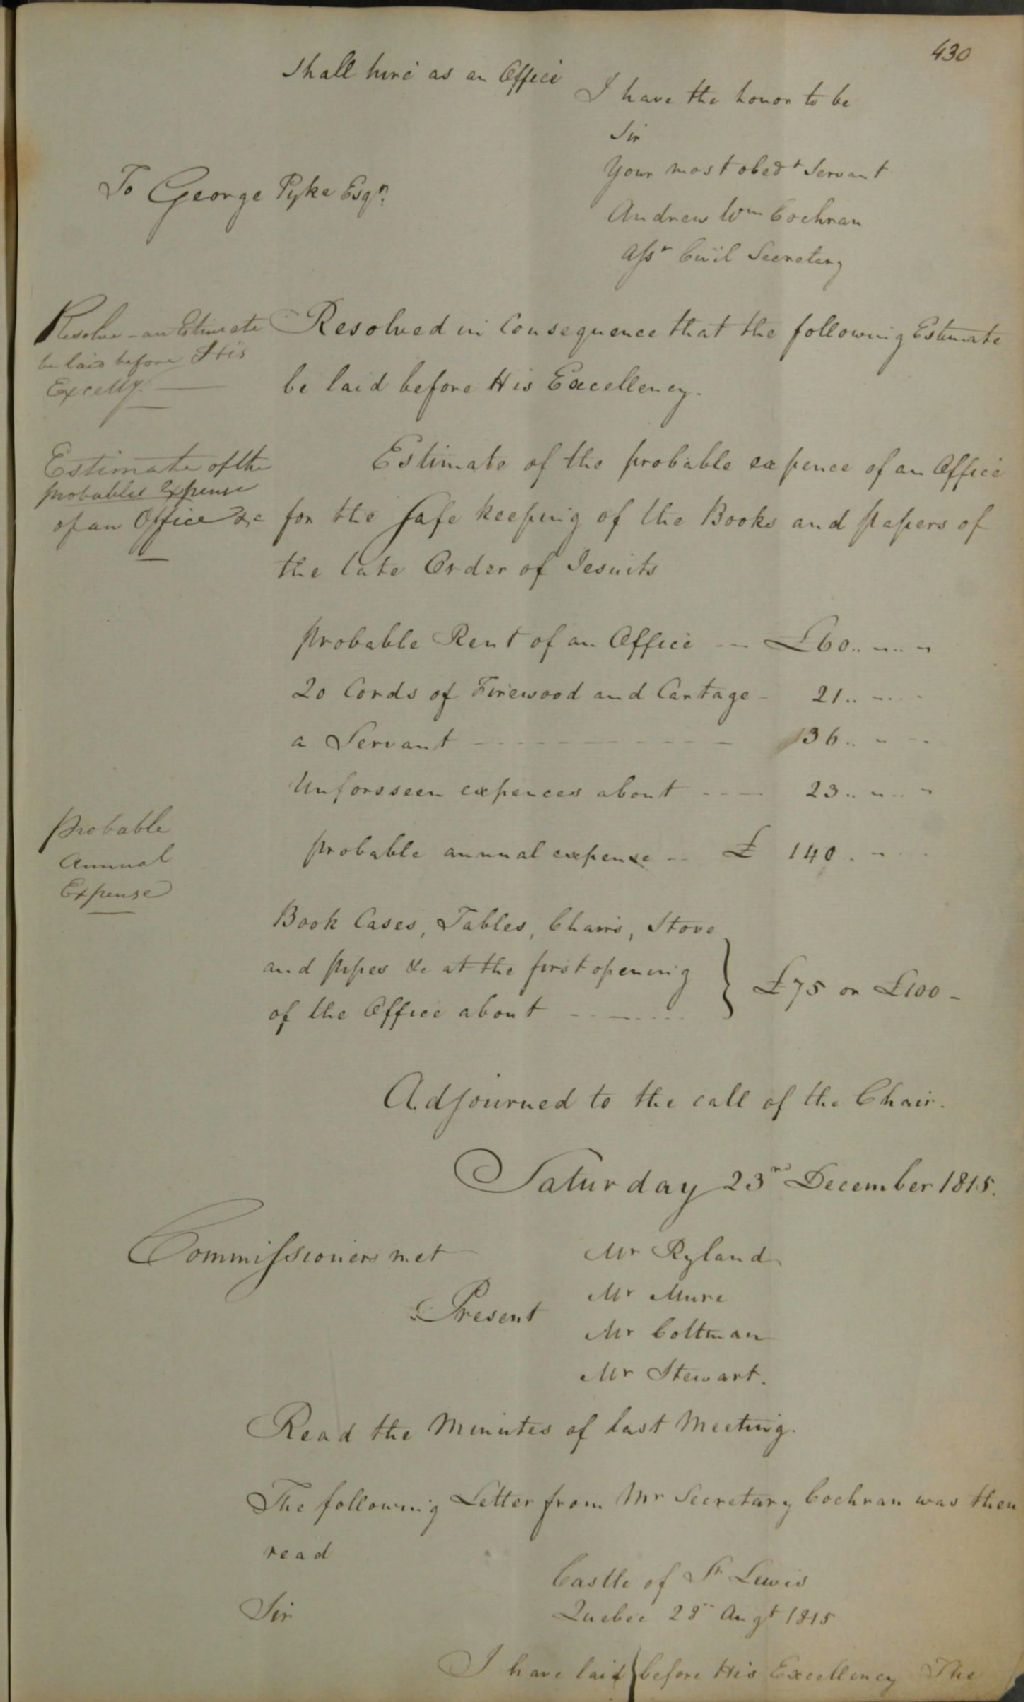 430
shall hire as an Office
I have the honor to be
Sir
Your most obedt Servant
To George Pyke Esqr.
Andrew Wm Cochran
Asst Civil Secretary
Resolve - an Estimate
be laid before His
Excelly.
Resolved in Consequence that the following Estimate
be laid before His Excellency.
Estimate of the
probables Expense
of an Office &c
Estimate of the probable expence of an Office
for the safe keeping of the Books and papers of
the late Order of Jesuits
probable Rent of an Office -- £60.. ".. "
20 Cords of Firewood and Cartage - 21.. "
a Servant - - - - - - 36.. " "
Unforsseen expences about - - - - 23.. ".. "
probable
Annual
Expense
probable annual expense -- £ 140. "
Book Cases, Tables, Chairs, Stove
and pipes &c at the first opening
of the Office about - - - - } £75 or £100 -
Adjourned to the call of the Chair.
Saturday 23rd December 1815.
Commissioners met
Present
Mr Ryland
Mr Mure
Mr Coltman
Mr Stewart.
Read the Minutes of last Meeting.
The following Letter from Mr Secretary Cochran was then
read
Castle of St Lewis
Sir
Quebec 28th Augt 1815
I have laid before His Excellency The